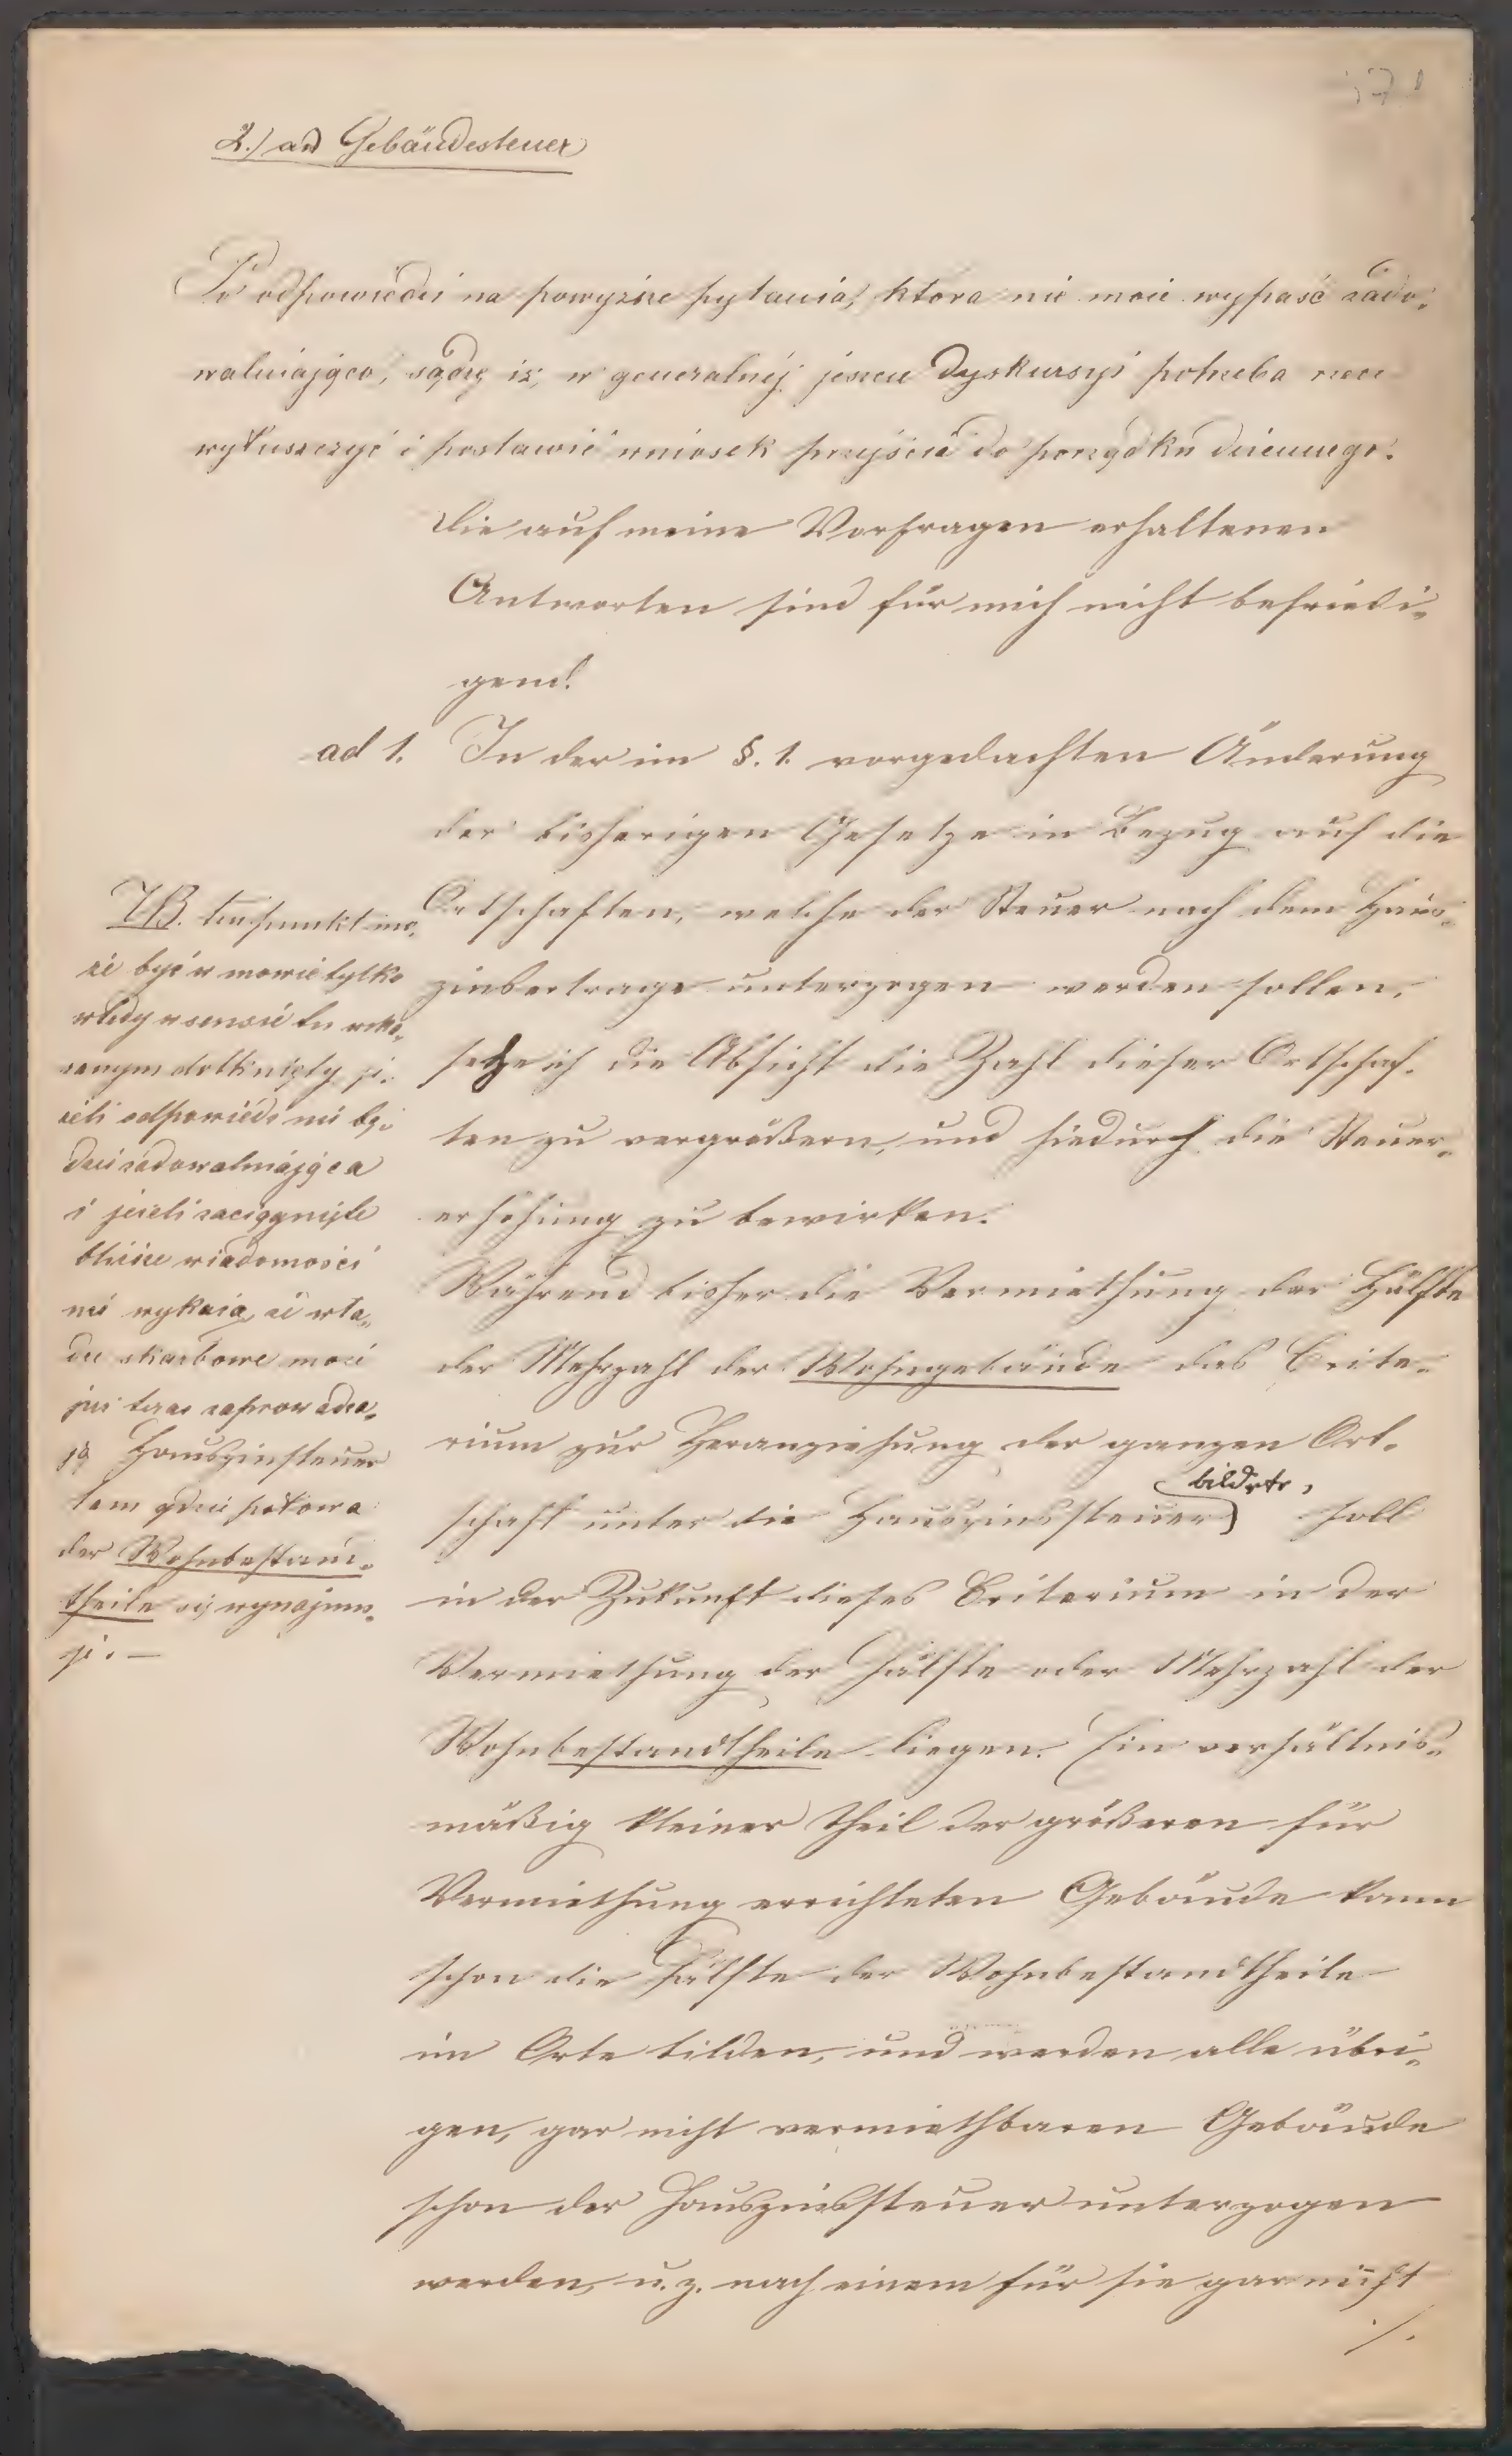 2.) ad Gebäudesteuer
Po odpowiedzi na powyższe pytania, która nie może wypaść zado-
walniająco, sądzę iż, w generalnéj jeszcze dyskursyi potrzeba rzecz
wyłuszczyć i postawić wniosek przejścia do porządku dziennego.
Die auf meine Vorfragen erhaltenen
Antworten sind für mich nicht befriedi-
gend.
ad 1. In der im §. 1. vorgedachten Änderung
der bisherigen Gesetze in Bezug auf die
Ortschaften, welche der Steuer nach dem Haus-
zinsertrage unterzogen werden sollen,
sehe ich die Absicht die Zahl dieser Ortschaf-
ten zu vergrößern, und hiedurch die Steuer-
erhöhung zu bewirken.
Während bisher die Vermiethung der Hälfte
der Mehrzahl der Wohngebäude das Crite-
rium zur Heranziehung der ganzen Ort-
schaft unter die Hauszinssteuer bildete, soll
in der Zukunft dieses Criterium in der
Vermiethung der Hälfte oder Mehrzahl der
Wohnbestandtheile liegen. Ein verhältnis-
mäßig kleiner Theil der größeren für
Vermiethung errichteten Gebäude kann
schon die Hälfte der Wohnbestandtheile
im Orte bilden, und werden alle übri-
gen, gar nicht vermiethbaren Gebäude
schon der Hauszinssteuer unterzogen
werden, u. z. nach einem für sie gar nicht
./.
NB. ten punkt mo-
że być w mowie tylko
wtedy w sensie tu wska-
zanym dotknięty, je-
żeli odpowiedź nie bę-
dzie zadowalniająca
i jeżeli zaciągnięte
bliższe wiadomości
nie wykażą, że wła-
dze skarbowe mocą
już teraz zaprowadza-
ją Hauszinssteuer
tam gdzie połowa
der Wohnbestand-
theile się wynajmu-
je. —